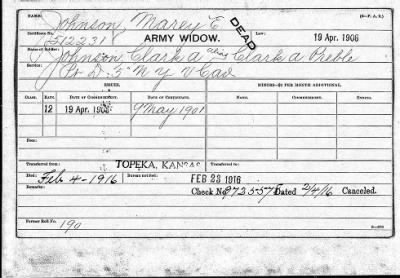 NAME: Johnson, Marcy E. (3-F. A. R.)
DEAD
Certificate No. 512231 ARMY WIDOW. Law: 19 Apr. 1906
Name of Soldier: Johnson, Clark A alias Clark A Preble
Service: Pvt D. 5" N Y V Cav
ISSUES. MINORS—$2 PER MONTH ADDITIONAL.
CLASS. RATE. DATE OF COMMENCEMENT. DATE OF CERTIFICATE.
12 19 Apr. 1906 9 May 1901
Transferred from TOPEKA, KANSAS Transferred to
Died: Feb 4-1916 Bureau notified: FEB 23 1916
Remarks: Check No. Dated 2/4/16 Canceled.
Former Roll No.
190